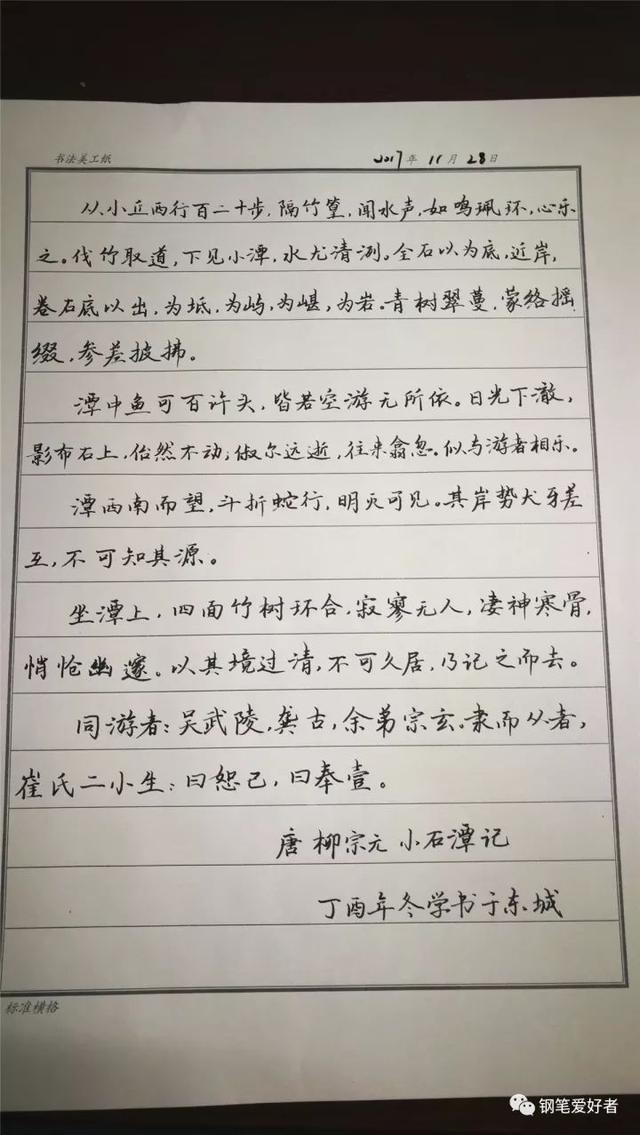 书法美工纸 2017年 11月 28日
从小丘西行百二十步,隔竹篁,闻水声,如鸣珮环,心乐
之。伐竹取道,下见小潭,水尤清洌。全石以为底,近岸,
卷石底以出,为坻,为屿,为嵁,为岩。青树翠蔓,蒙络摇
缀,参差披拂。
潭中鱼可百许头,皆若空游无所依。日光下澈,
影布石上,佁然不动;俶尔远逝,往来翕忽。似与游者相乐。
潭西南而望,斗折蛇行,明灭可见。其岸势犬牙差
互,不可知其源。
坐潭上,四面竹树环合,寂寥无人,凄神寒骨,
悄怆幽邃。以其境过清,不可久居,乃记之而去。
同游者:吴武陵,龚古,余弟宗玄。隶而从者,
崔氏二小生:曰恕己,曰奉壹。
唐 柳宗元 小石潭记
丁酉年冬学书于东城
标准横格
钢笔爱好者